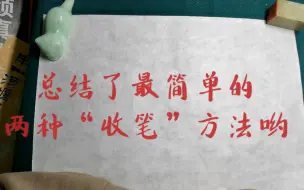 总结了最简单的
两种“收笔”方法哟